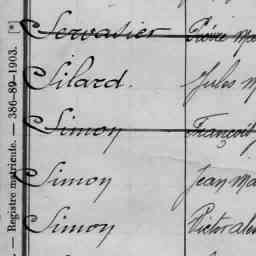 Servasier Pierre Ma
Silard. Jules M
Simon François
Simon Jean Ma
Simon Victor Ale
— Registre matricule. — 386-89-1903. [*]